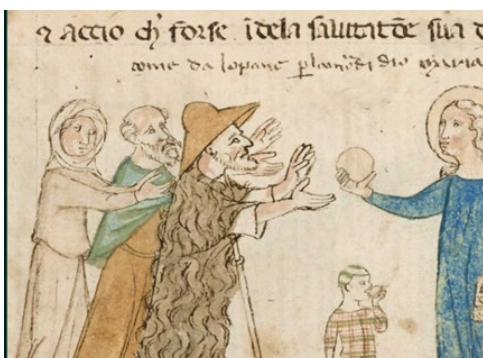 ⁊ accio ch̄ forse i dela salutatōe sua d
come da lo pane p̱ lamōr di dio maria